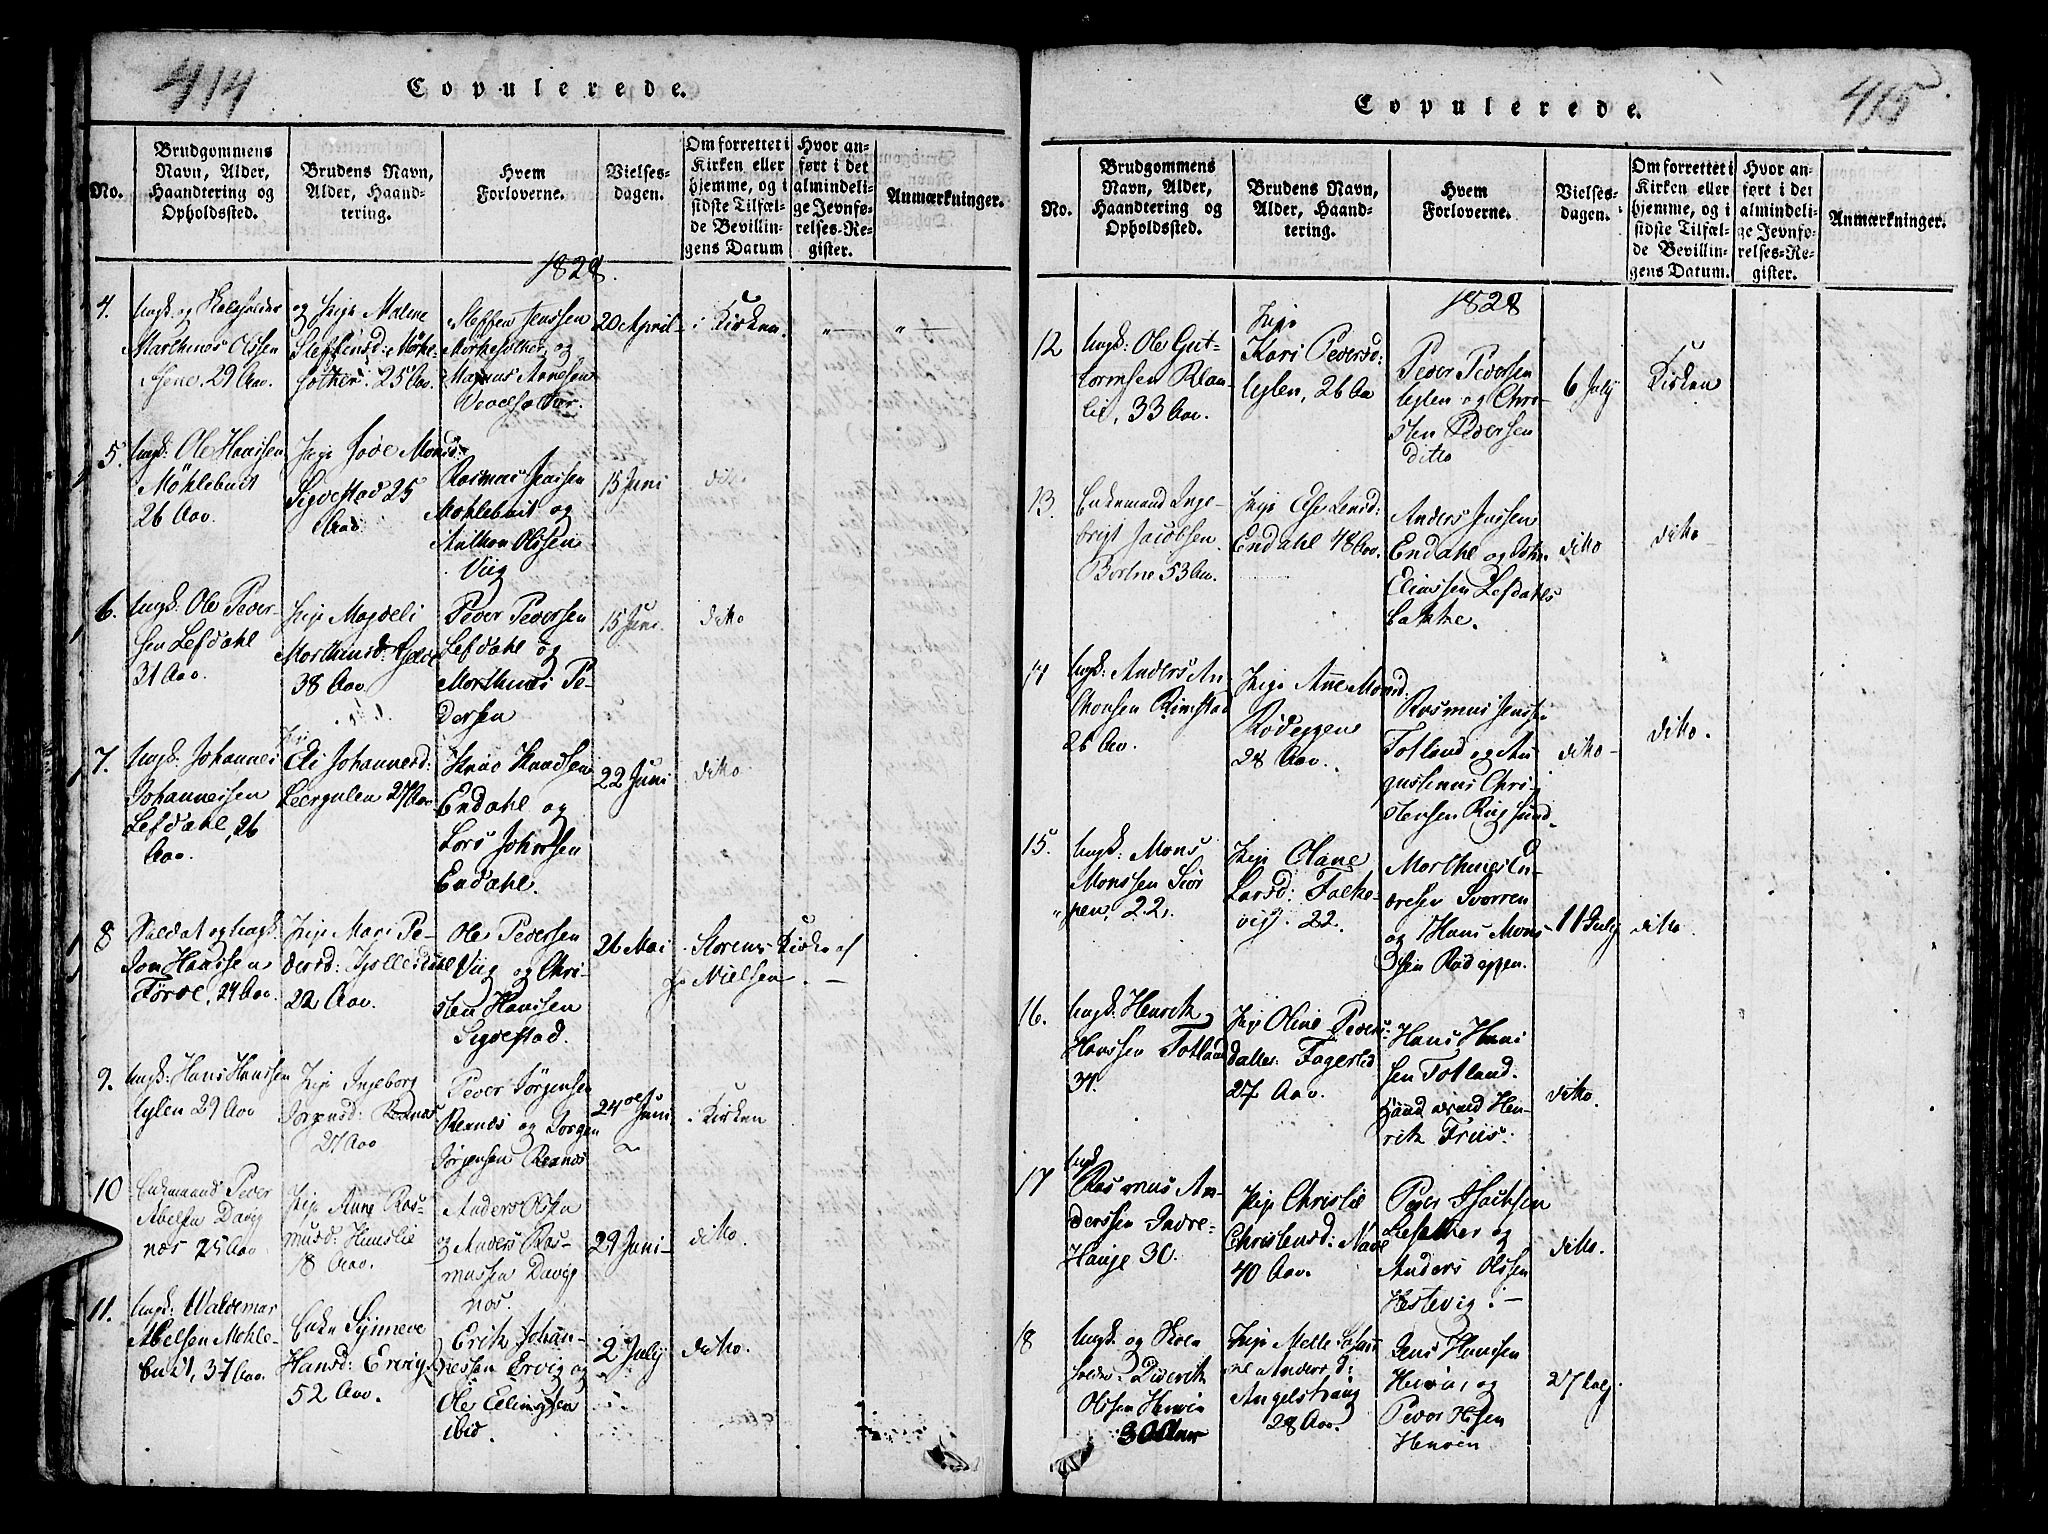 414
Copulerede.
No.
Brudgommens
Navn, Alder,
Haandtering og
Opholdssted.
Brudens Navn,
Alder, Haand-
tering.
Hvem
Forloverne.
Vielses-
dagen.
Om forrettet i
Kirken eller
hjemme, og i
sidste Tilfæl-
de Bevillin-
gens Datum
Hvor an-
ført i det
almindeli-
ge Jevnfø-
relses-Re-
gister.
Anmærkninger.
1828.
4.
Ungk: og
Marthinos Olssen
29 Aar.
og Pige Malene
Steffensd:
25 Aar.
Steffen Jenssen
og
Magnus Arnesen
20 April
i Kirken.
5.
Ungk: Ole Hanssen
Möhlebust
26 Aar.
Pige
Sigdestad 25
Aar.
Rasmus Jenssen
Möhlebust og
Anthon Olssen
Viig
15 Juni
dito
6.
Ungk: Ole Peder-
sen Lefdahl
31 Aar.
Pige Magdeli
Morthensd:
38 Aar.
Peder Pedersen
Lefdahl og
Morthines Pe-
dersen
15 Juni.
dito
7.
Ungk: Johannes
Johannessen
Lefdahl, 26
Aar.
Pige
Eli Johannesd:
Leergulen 27 Aar
Knud Knudsen
Endahl og
Lars Johnssen
Endahl.
22 Juni
dito
8
Soldat og Ungk:
Jon Hanssen
24 Aar.
Pige Mari Pe-
dersd:
22 Aar.
Ole Pedersen
Viig og Chri-
sten Hanssen
Sigdestad.
26 Mai
Storenes Kirke af
Hr. Nielsen.
9.
Ungk: Hans Hanssen
29 Aar
Pige Ingeborg
Jörgensd: Rexnæs
27 Aar
Peder Jörgensen
Rexnæs og Jörgen
Jörgensen Rexnæs
24de Juni
i Kirken
10
Enkemand Peder
Abelsen Davig
næs 25 Aar
Pige Anne Ras-
musd:
18 Aar.
Anders Olssen
og Anders Ras-
mussen Davig
næs.
29 Juni
dito.
11.
Ungk: Waldemar
Abelsen Möhle-
bust, 37 Aar.
Enke Synneve
Hansd: Ervig
52 Aar.
Erik Johan-
nessen Ervig og
Ole Ellingsen
ibid.
2 July
dito.
415
Copulerede.
No.
Brudgommens
Navn, Alder,
Haandtering og
Opholdssted.
Brudens Navn,
Alder, Haand-
tering.
Hvem
Forloverne.
Vielses-
dagen.
Om forrettet i
Kirken eller
hjemme, og i
sidste Tilfæl-
de Bevillin-
gens Datum.
Hvor an-
ført i det
almindeli-
ge Jevnfø-
relses-Re-
gister.
Anmærkninger.
1828
12
Ungk: Ole Gut-
tormsen
33 Aar.
Pige
Kari Pedersd:
26 Aar
Peder Pedersen
og Chri-
sten Pedersen
ditto
6 July
Kirken
13.
Enkemand Inge-
brigt Jacobsen
Bortne 53 Aar.
Pige Else
Endahl 48 Aar.
Anders Jenssen
Endahl og
Eliassen Lefdahls
bakke.
dito
dito
14
Ungk: Anders An-
thonsen Rimstad
26 Aar.
Pige Anne Monsd:
Rödeggen
28 Aar.
Rasmus Jenssen
Totland og Au-
gustinus Chri-
stensen Rugsund.
dito
dito.
15.
Ungk: Mons
Monssen Skor
pen, 22.
Pige Oline
Larsd: Falke-
vig. 22.
Morthines En-
dresen Svorren
og Hans Mons-
sen Rödeggen.
11 July
dito.
16.
Ungk: Henrik
Hanssen Totland
34.
Pige Oline Peders-
datter Fagerlid
27 Aar.
Hans Hans
sen Totland.
Haandværksmd Hen-
rik Friis.
dito.
17
Ungk:
Rasmus An-
derssen Indre-
Hauge 30.
Pige Christie
Christensd: Nave
40 Aar.
Peder Isachsen
og
Anders Olssen
Hestevig.
dito.
18
Ungk: og
Diderik
Olssen Henøen
30 Aar
Pige Mette Susan
ne Andersd:
Angelshaug
28 Aar.
Jens Hanssen
Henøen, og
Peder
Henøen
27 July.